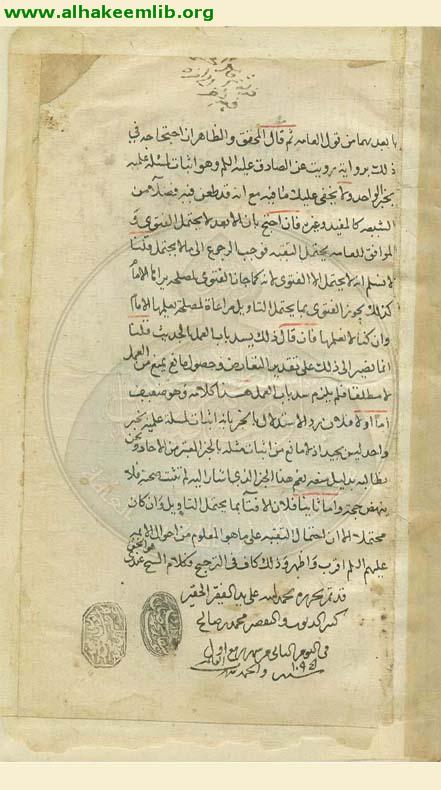 www.alhakeemlib.org
ما بعدهما من قول العامه ثم قال المحقق والظاهران احتجاجه في
ذلك برواية رويت عن الصادق عليه السلم وهو اثبات لمسئلة علمية
بخبر الواحد ولا يخفى عليك ما فيه مع انه قد طعن فيه فضلاء من
الشيعه كالمفيد وغيره فان احتج بان الابعد لا يحتمل الا الفتوى و
الموافق للعامه يحتمل التقيه فوجب الرجوع الى ما لا يحتمل قلنا
لا نسلم انه لا يحتمل الا الفتوى لانه كما جاز الفتوى لمصلحة يراها الامام
كذلك يجوز الفتوى بما يحتمل التاويل مراعاة لمصلحة يعلمها الامام
وان كنا لا نعلمها فان قال ذلك يسد باب العمل بالحديث قلنا
انما نصير الى ذلك على تقدير التعارض وحصول مانع يمنع من العمل
لا مطلقا فلم يلزم سد باب العمل هذا كلامه وهو ضعيف
اما اولا فلان رد الاستدلال بالخبر بانه اثبات لمسئلة علمية بخبر
واحد ليس بجيد اذ لا مانع من اثبات مثله بالخبر المعتبر من الاحاد ونحن
نطالبه بدليل منعه نعم هذا الخبر الذي اشار اليه لم تثبت صحته فلا
ينهض حجة واما ثانيا فلان الافتاء بما يحتمل التاويل وان كان
محتملا الا ان احتمال التقيه على ما هو المعلوم من احوال الائمه
عليهم السلم اقرب واظهر وذلك كاف في الترجيح فكلام الشيخ عندي هو الحق
قد تم تحريره بحمد الله على يد الفقير الحقير
كثير الذنوب والتقصير محمد
في اليوم الثاني من شهر ربيع الاول
سنه ١٠٩٤ والحمد لله